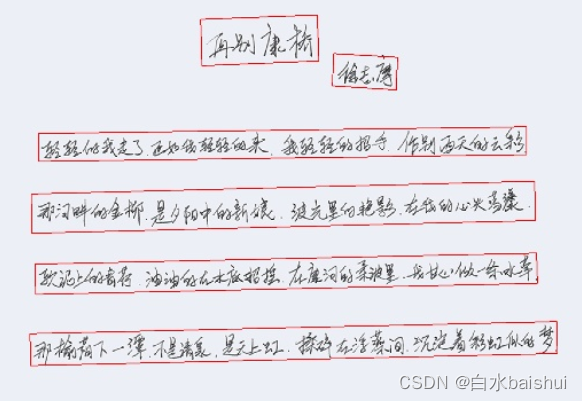 再别康桥
徐志摩
轻轻的我走了,正如我轻轻的来,我轻轻的招手,作别西天的云彩
那河畔的金柳,是夕阳中的新娘,波光里的艳影,在我的心头荡漾.
软泥上的青荇,油油的在水底招摇,在康河的柔波里,我甘心做一条水草
那榆荫下一潭,不是清泉,是天上虹,揉碎在浮藻间,沉淀着彩虹似的梦
CSDN @白水baishui